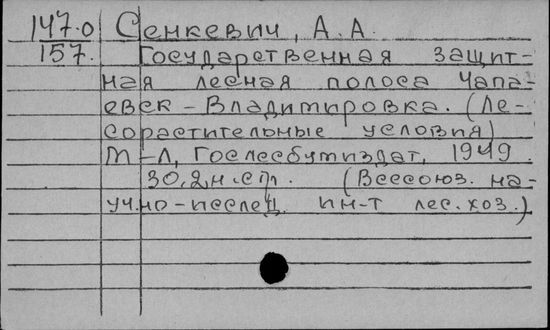 147.0 Сенкевич, А. А.
157. Государственная защит-
ная лесная полоса Чапа-
евск - Владимировка. (Ле-
сорастительные условия)
М-Л, Гослесбумиздат, 1949.
30,2 н. стр. (Всесоюз. на-
учно-исслед. ин-т лес. хоз.)